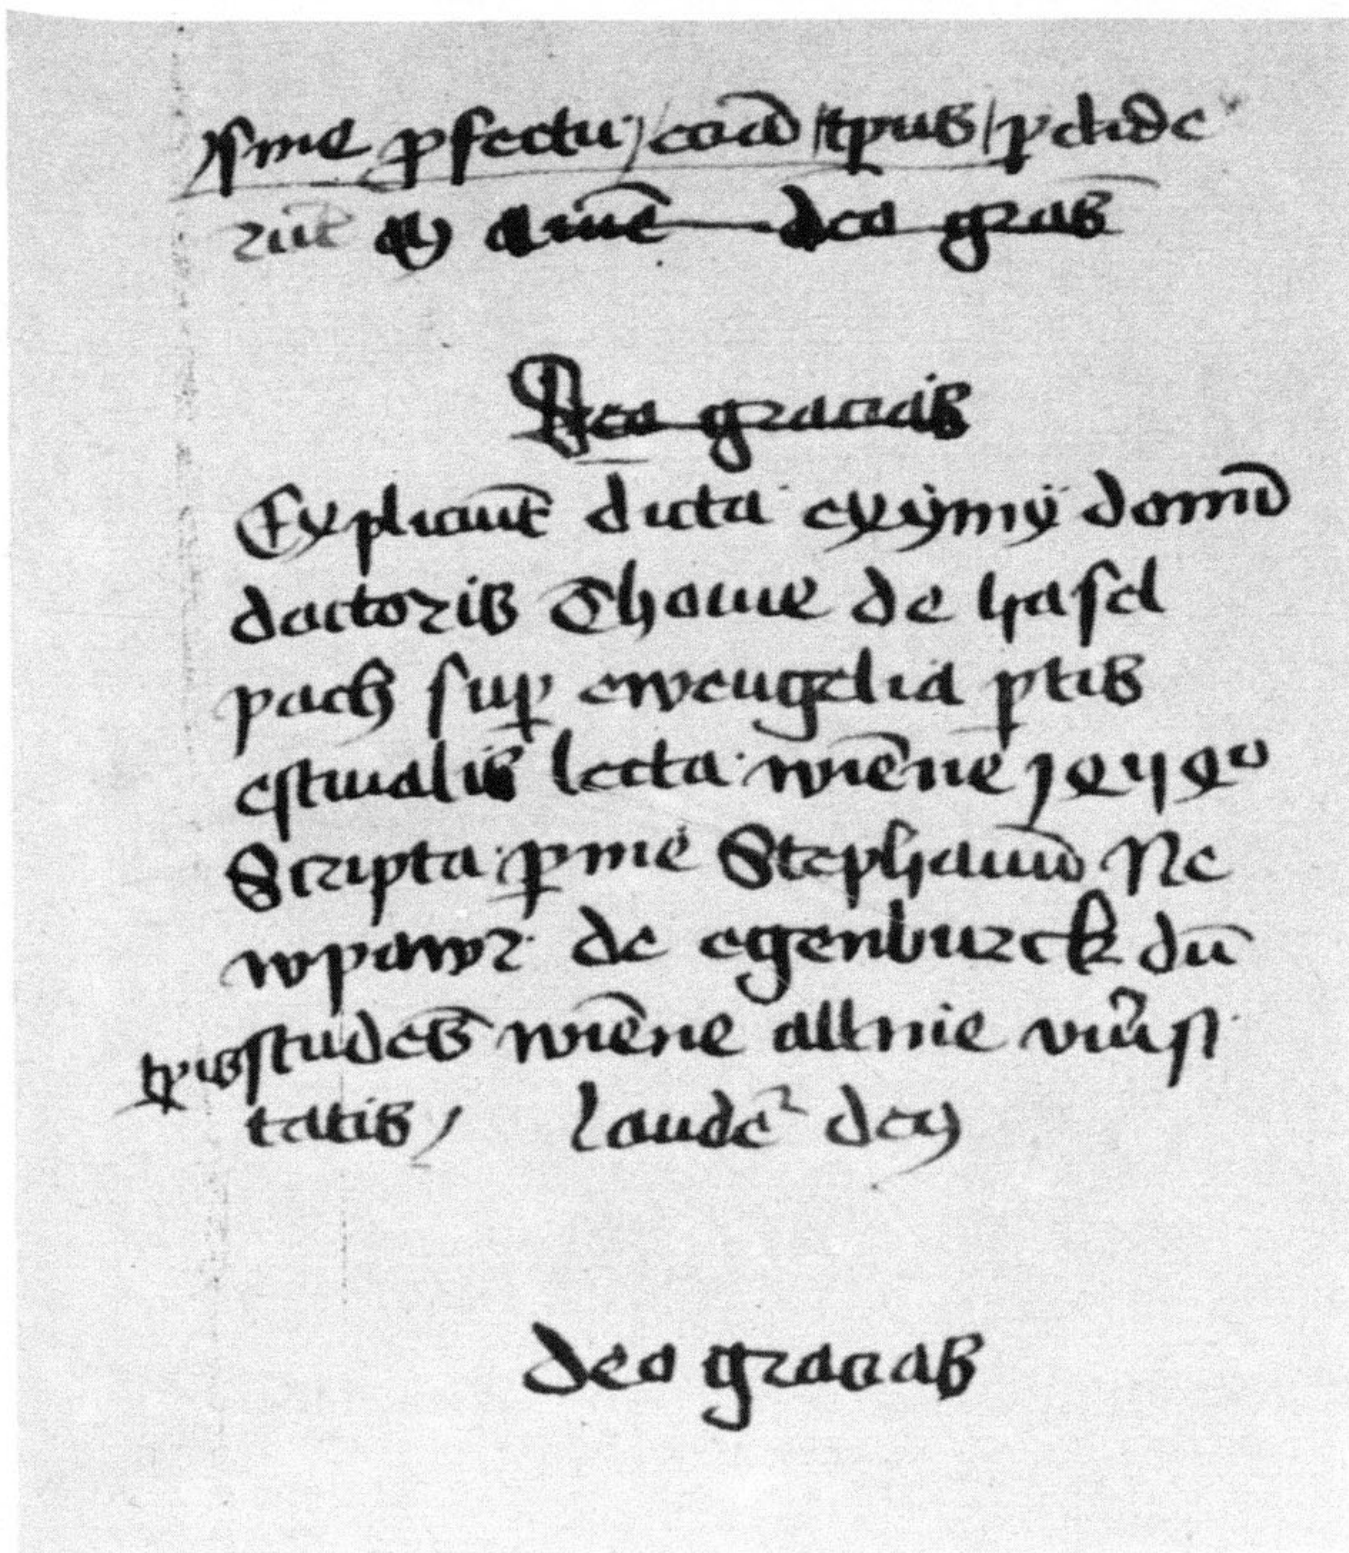 sine profectu / coram / tempus / perdide
runt etc Amen deo gracias
Deo gracias
Expliciunt dicta exÿmÿ domini
doctoris Thome de hasel
pach sup ewengelia ptis
estiualis lecta wiēne 1454º
Scripta p me Stephanū Ne
wpawr de egenburck dū
tpis studēs wiēne alme vniūsi
tatis / laudet᷑ deus
deo gracias